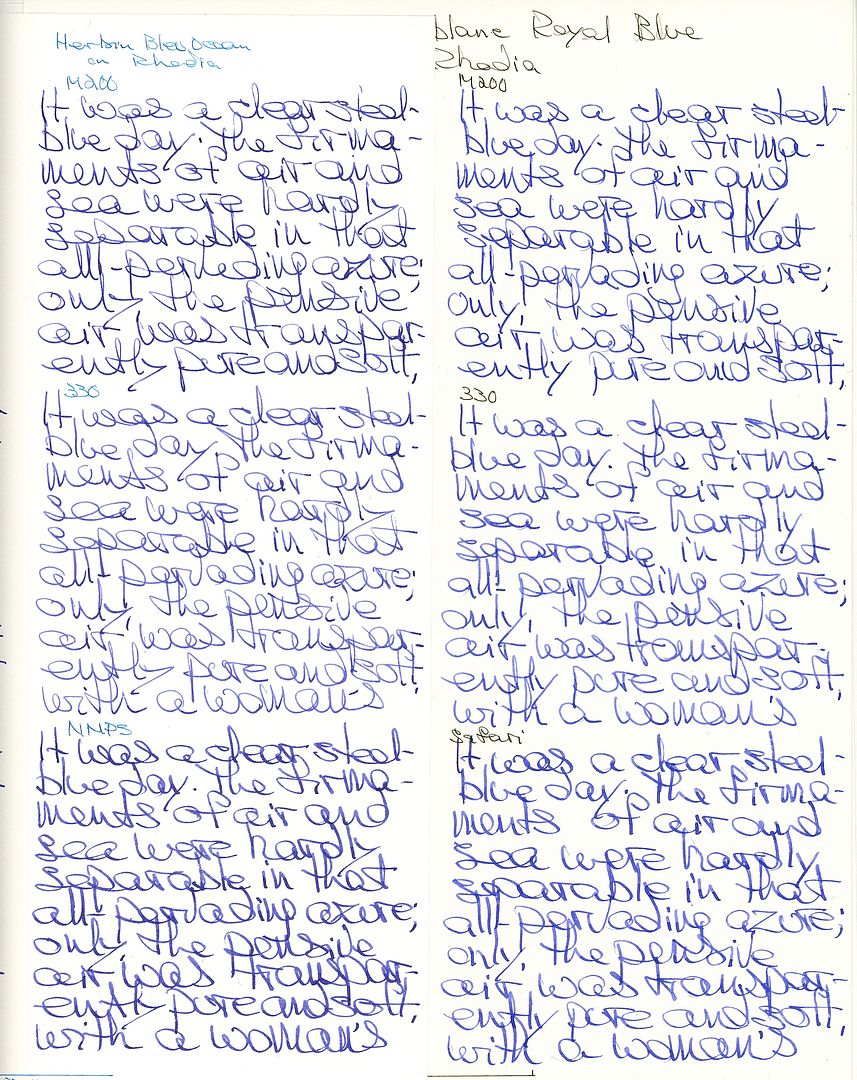 Herbin Bleu Ocean
on Rhodia
M200
It was a clear steel-
blue day. The firma-
ments of air and
sea were hardly
separable in that
all-pervading azure;
only, the pensive
air was transpar-
ently pure and soft,
330
It was a clear steel-
blue day. The firma-
ments of air and
sea were hardly
separable in that
all-pervading azure;
only, the pensive
air, was transpar-
ently pure and soft
with a woman's
NNPS
It was a clear steel-
blue day. The firma-
ments of air and
sea were hardly
separable in that
all-pervading azure;
only, the pensive
air, was transpar-
ently pure and soft,
with a woman's
blanc Royal Blue
Rhodia
M200
It was a clear steel-
blue day. The firma-
ments of air and
sea were hardly
separable in that
all-pervading azure;
only, the pensive
air, was transpar-
ently pure and soft,
330
It was a clear steel-
blue day. The firma-
ments of air and
sea were hardly
separable in that
all-pervading azure;
only, the pensive
air, was transpar-
ently pure and soft,
with a woman's
Safari
It was a clear steel-
blue day. The firma-
ments of air and
sea were hardly
separable in that
all-pervading azure;
only, the pensive
air, was transpar-
ently pure and soft,
with a woman's